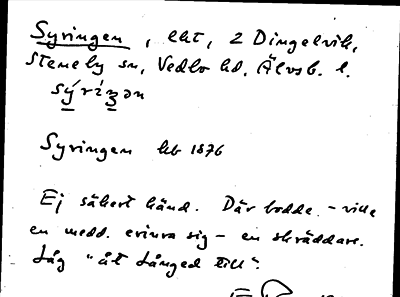 Syringen, lht, 2 Dingelvik,
Steneby sn, Vedbo hd, Älvsb. l.
sýrìʒən
Syringen hb 1876
Ej säkert känd. Där bodde – ville
en medd. erinra sig – en skräddare.
Låg "åt Långed till".